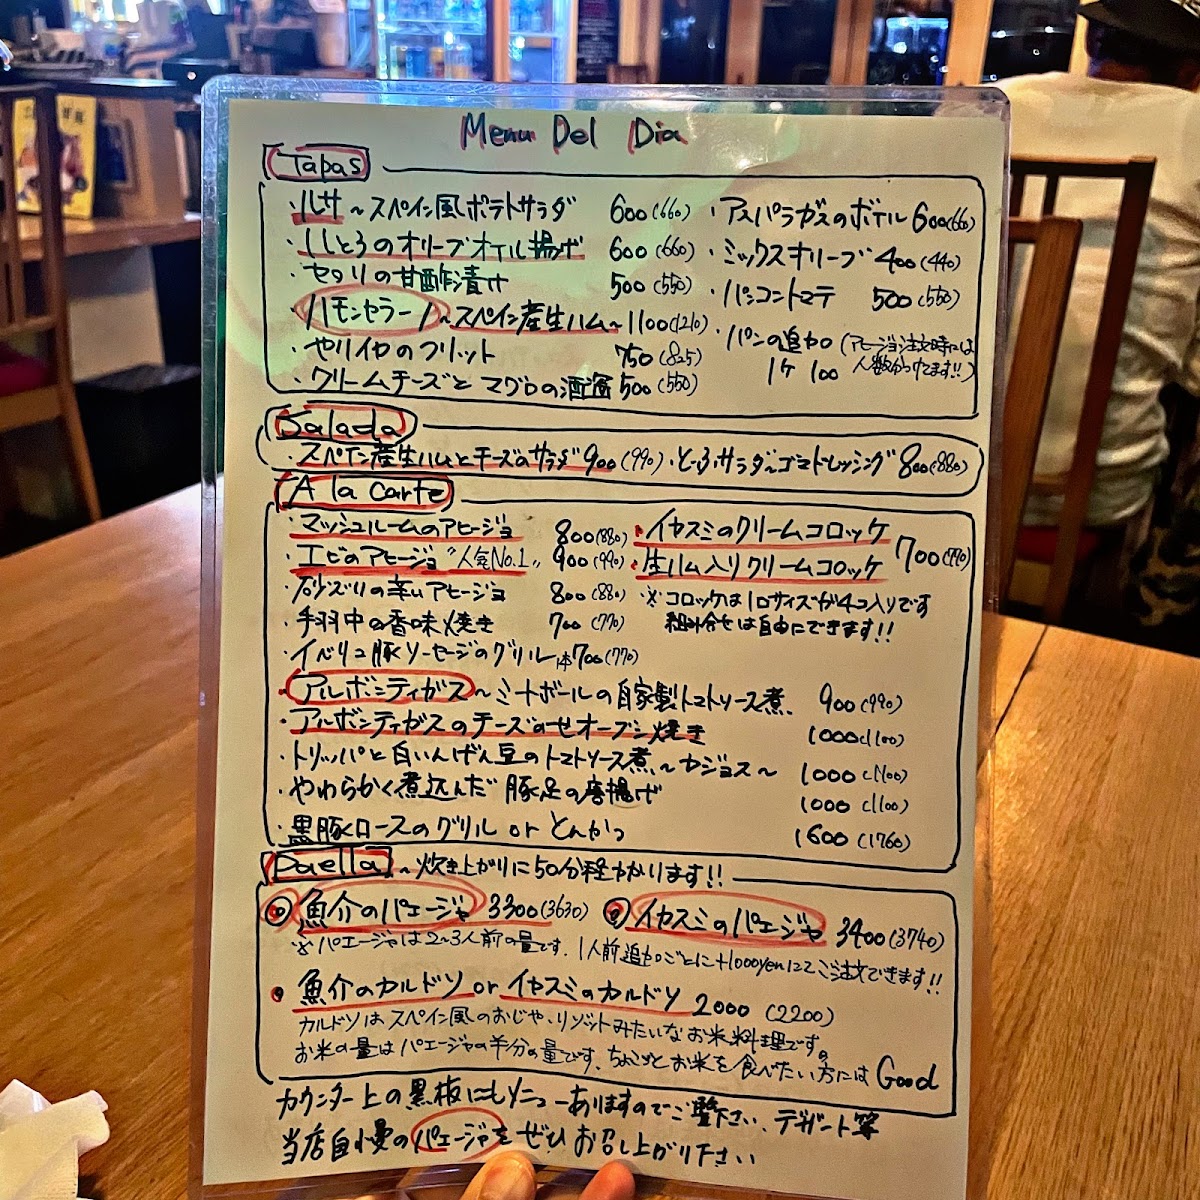 Menu Del Dia
Tapas
・ルサ～スペイン風ポテトサラダ 600(660)
・ししとうのオリーブオイル揚げ 600(660)
・セロリの甘酢漬け 500(550)
・ハモンセラーノ～スペイン産生ハム～1100(1210)
・ヤリイカのフリット 750(825)
・クリームチーズとマグロの酒盗 500(550)
・アスパラガスのボイル 600(660)
・ミックスオリーブ 400(440)
・パンコントマテ 500(550)
・パンの追加(アヒージョ注文時には
1ケ 100 人数分つけてます!!)
Salada
・スペイン産生ハムとチーズのサラダ 900(990)・とうふサラダ～ゴマドレッシング 800(880)
A la carte
・マッシュルームのアヒージョ 800(880)
・エビのアヒージョ "人気No.1" 900(990)
・砂ズリの辛いアヒージョ 800(880)
・手羽中の香味焼き 700(770)
・イベリコ豚ソーセージのグリル 1本700(770)
・イカスミのクリームコロッケ
・生ハム入りクリームコロッケ 700(770)
※コロッケは1口サイズが4コ入りです
組み合せは自由にできます!!
・アルボンディガス～ミートボールの自家製トマトソース煮 900(990)
・アルボンディガスのチーズのせオーブン焼き 1000(1100)
・トリッパと白いんげん豆のトマトソース煮～カジョス～ 1000(1100)
・やわらかく煮込んだ豚足の唐揚げ 1000(1100)
・黒豚ロースのグリル or とんかつ 1600(1760)
Paella～炊き上がりに50分程かかります!!
① 魚介のパエージャ 3300(3630) ② イカスミのパエージャ 3400(3740)
※パエージャは2～3人前の量です。1人前追加ごとに+1000yenにてご注文できます!!
・魚介のカルドソ or イカスミのカルドソ 2000(2200)
カルドソはスペイン風のおじや、リゾットみたいなお米料理です。
お米の量はパエージャの半分の量です、ちょこっとお米を食べたい方には Good
カウンター上の黒板にもメニューありますのでご覧下さい、デザート等
当店自慢のパエージャをぜひお召し上がり下さい